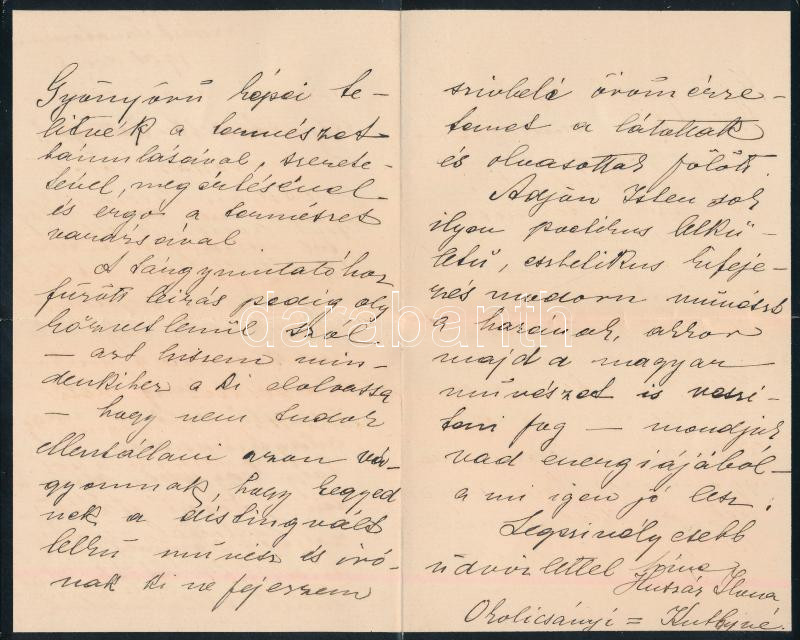 Gyönyörü képei te-
litvék a természet
bámulásával, szerete-
tével, megértésével
és ergo a természet
varázsával
A tárgymutatóhoz
füzött leirás pedig oly
közvetlenül szól
— azt hiszem min-
denkihez a ki elolvassa
— hogy nem tudok
ellentállani azon vá-
gyomnak, hogy kegyed
nek a distingvált
lelkü müvész és iró-
nak ki ne fejezzem
szivbeli örömérze-
temet a látottak
és olvasottak fölött.
Adjon Isten sok
ilyen poetikus lelkü-
letü, esztetikus kifeje-
zés modoru müvészt
a hazának, akkor
majd a magyar
müvészet is veszi-
teni fog — mondjuk
vad energiájából -
a mi igen jó lesz.
Legszivélyesebb
üdvözlettel
Huszár Ilona
Okolicsányi = Kuthyné.
darabanth